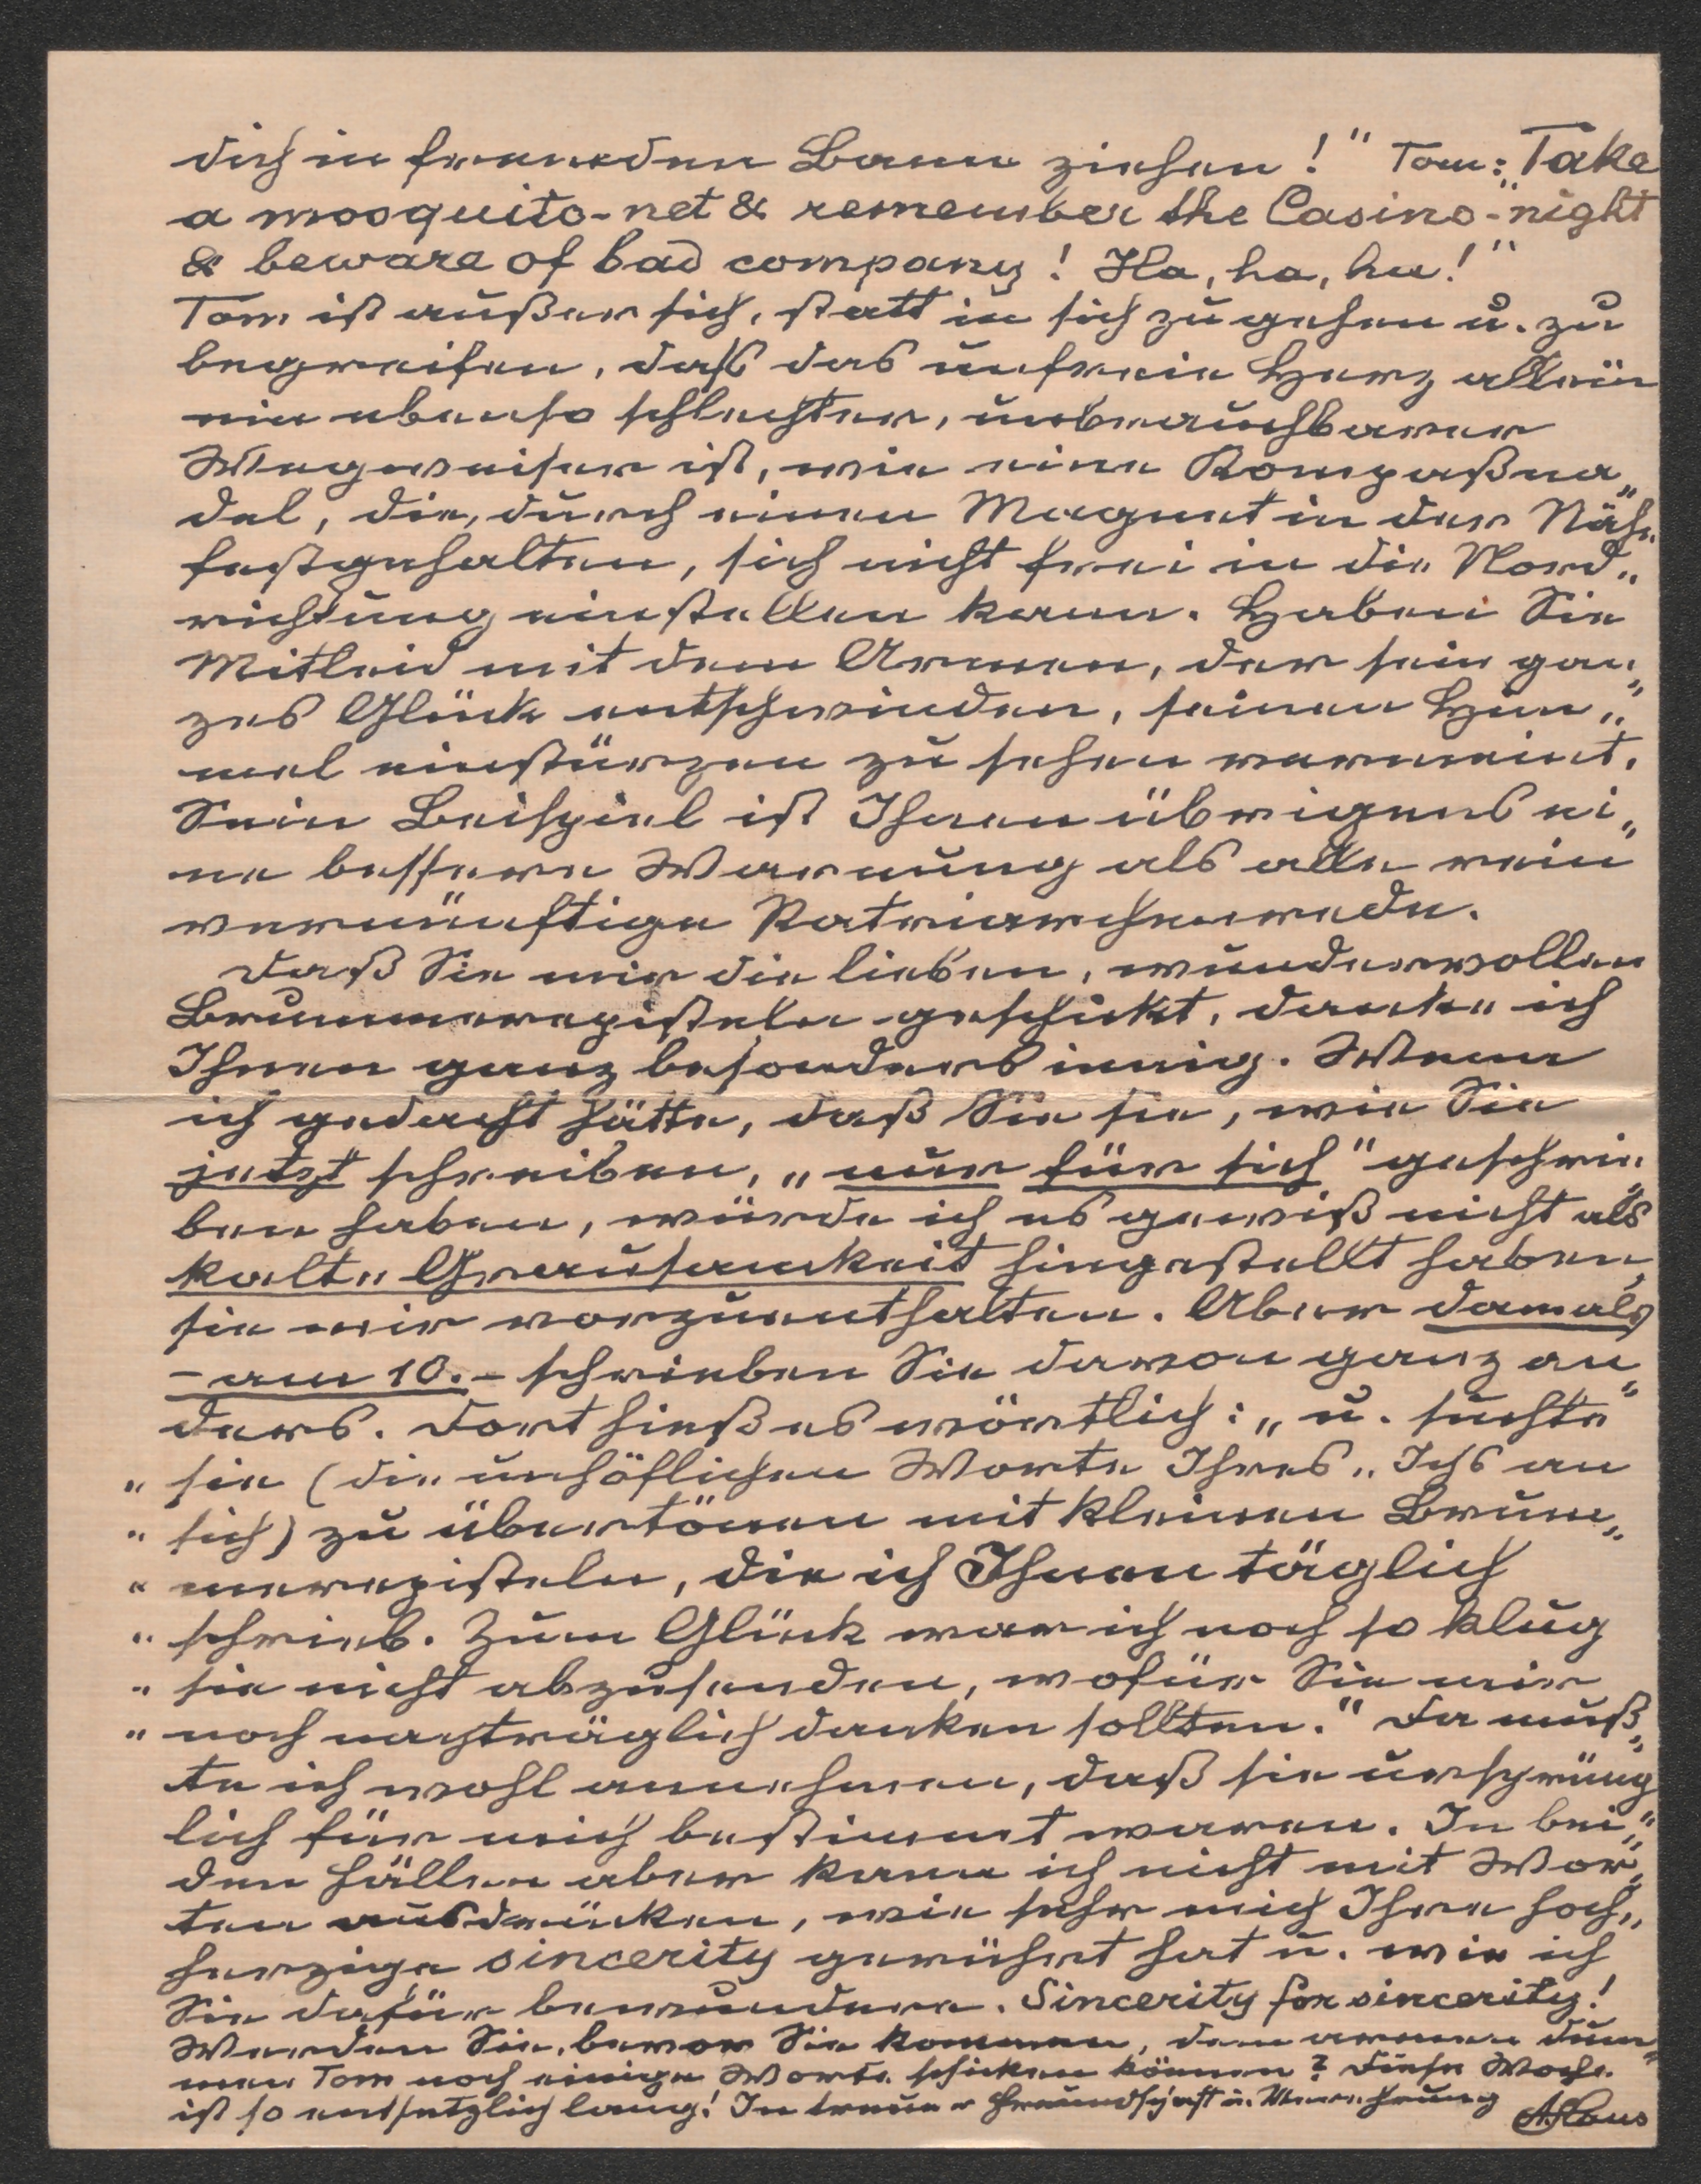 dich in fremden Bann ziehen!" Tom: „Take
a mosquito-net & remember the Casino-night
& beware of bad company! Ha, ha, ha!"
Tom ist außer sich, statt in sich zu gehen u. zu
begreifen, daß das unfreie Herz allein
ein ebenso schlechter, unbrauchbarer
Wegweiser ist, wie eine Kompaßna„
del, die, durch einen Magnet in der Nähe
festgehalten, sich nicht frei in die Nord„
richtung einstellen kann. Haben Sie
Mitleid mit dem Armen, der sein gan„
zes Glück entschwinden, seinen Him„
mel einstürzen zu sehen vermeint.
Sein Beispiel ist Ihnen übrigens ei„
ne bessere Warnung als alle rein
vernünftige Patriarchenrede.
Daß Sie mir die lieben, wundervollen
Brummerepisteln geschickt, danke ich
Ihnen ganz besonders innig. Wenn
ich gedacht hätte, daß Sie sie, wie Sie
jetzt schreiben, „nur für sich" geschrie„
ben haben, würde ich es gewiß nicht als
kalte Grausamkeit hingestellt haben,
sie mir vorzuenthalten. Aber damals
- am 10. - schrieben Sie davon ganz an„
ders. Dort hieß es wörtlich: „u. suchte
„ sie (die unhöflichen Worte Ihres „Ichs an
„ sich) zu übertönen mit kleinen Brum„
„ merepisteln, die ich Ihnen täglich
„ schrieb. Zum Glück war ich noch so klug
„ sie nicht abzusenden, wofür Sie mir
„ noch nachträglich danken sollten." Da muß„
te ich wohl annehmen, daß sie ursprüng
lich für mich bestimmt waren. In bei„
den Fällen aber kann ich nicht mit Wor„
ten ausdrücken, wie sehr mich Ihre hoch„
herzige sincerity gerührt hat u. wie ich
Sie dafür bewundere. Sincerity for sincerity!
Werden Sie, bevor Sie kommen, dem armen dum„
men Tom noch einige Worte schicken können? Diese Woche
ist so entsetzlich lang! In treuer Freundschaft u. Verehrung